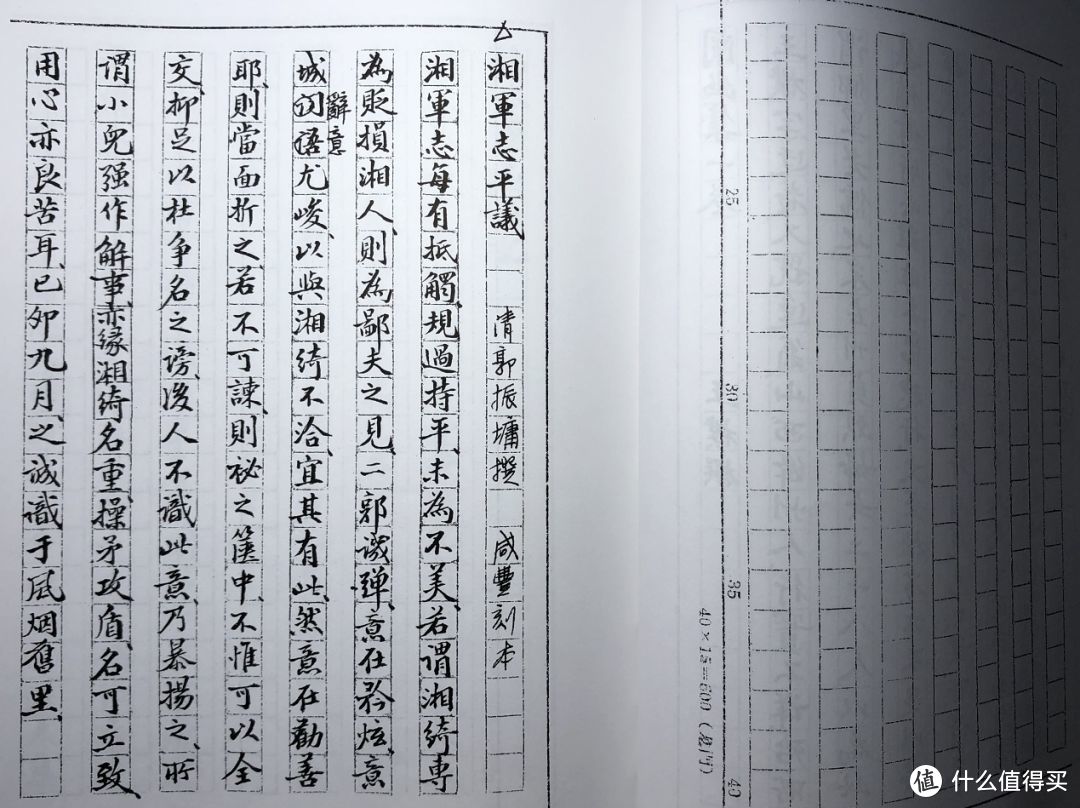 湘軍志平議 清郭振墉撰 咸豐刻本
湘軍志每有抵觸、規過持平、未為不美、若謂湘綺專
為貶損湘人、則為鄙夫之見、二郭譏彈、意在矜炫、意
城詞語尤峻、以與湘綺不洽、宜其有此、然意在勸善
辭意
耶、則當面折之、若不可諫、則祕之篋中、不惟可以全
交、抑足以杜爭名之謗、後人不識此意、乃暴揚之、所
謂小兒强作解事、亦緣湘綺名重、操矛攻盾、名可立致、
用心亦良苦耳、已卯九月、之誠識于風烟舊里、
25
30
35
40
40×15=600
值 什么值得买